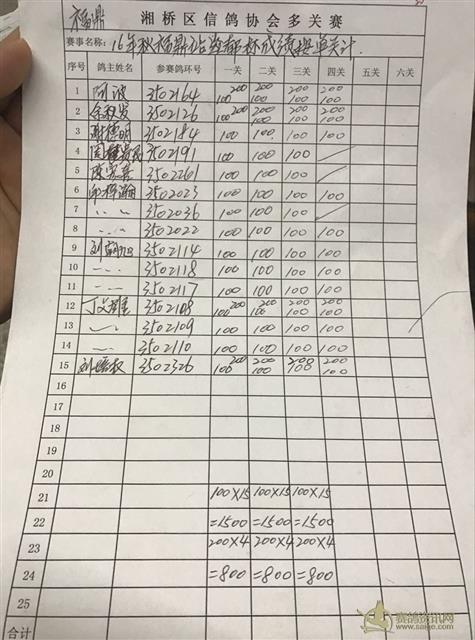 福鼎
湘桥区信鸽协会多关赛
赛事名称：16年秋福鼎站 成绩 单关计
序号 鸽主姓名 参赛鸽环号 一关 二关 三关 四关 五关 六关
1 阿波 3502164 100 200 100 200 100 200 100 200
2 余秋发 3502126 100 200 100 200 100 200 100 200
3 谢德明 3502184 100 100 100 100
4 3502191 100 100 100
5 3502261 100 100 100
6 3502023 100 100 100 100
7 〃 〃 3502036 100 100 100
8 〃 〃 3502022 100 100 100 100
9 3502114 100 100 100 100
10 〃 〃 3502118 100 100 100 100
11 〃 〃 3502117 100 100 100 100
12 3502108 100 200 100 200 100 200 100 200
13 〃 〃 3502109 100 100 100 100
14 〃 〃 3502110 100 100 100 100
15 3502326 100 200 100 200 100 200 100 200
16
17
18
19
20
21 100×15 100×15 100×15
22 =1500 =1500 =1500
23 200×4 200×4 200×4
24 =800 =800 =800
25
合计
赛鸽资讯网
www.saige.com